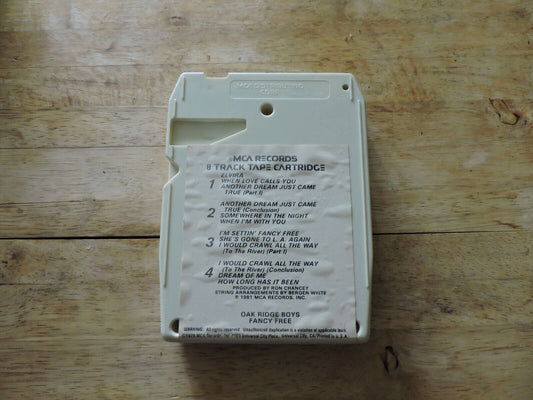 MCA DISTRIBUTING
CORP.
MCA RECORDS
8 TRACK TAPE CARTRIDGE
ELVIRA
1 WHEN LOVE CALLS YOU
ANOTHER DREAM JUST CAME
TRUE (Part I)
ANOTHER DREAM JUST CAME
2 TRUE (Conclusion)
SOMEWHERE IN THE NIGHT
WHEN I'M WITH YOU
I'M SETTIN' FANCY FREE
3 SHE'S GONE TO L. A. AGAIN
I WOULD CRAWL ALL THE WAY
(To The River) (Part I)
I WOULD CRAWL ALL THE WAY
4 (To The River) (Conclusion)
DREAM OF ME
HOW LONG HAS IT BEEN
PRODUCED BY RON CHANCEY
STRING ARRANGEMENTS BY BERGEN WHITE
℗ 1981 MCA RECORDS, INC.
OAK RIDGE BOYS
FANCY FREE
WARNING: All rights reserved. Unauthorized duplication is a violation of applicable laws.
©1979 MCA Records, Inc. Universal City Plaza, Universal City, CA/ Printed in U. S. A.